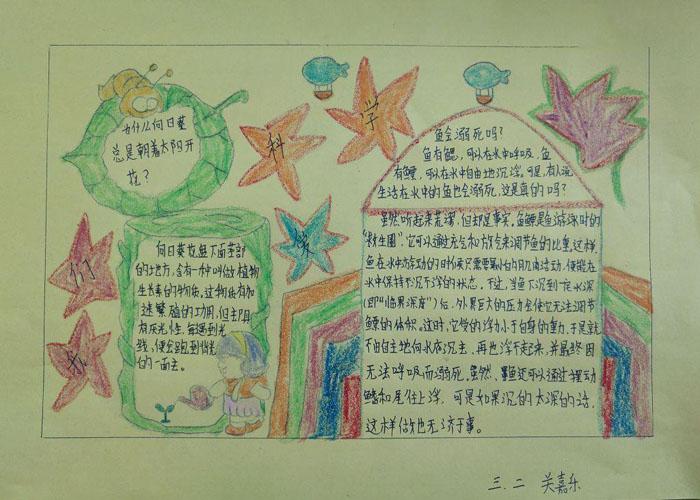 我
们
爱
科
学
为什么向日葵
总是朝着太阳开
花？
向日葵花盘下面茎部
的地方，含有一种叫做植物
生长素的物质。这物质有加
速繁殖的功用，但它具
有反光性，每遇到光
线，便会跑到背光
的一面去。
鱼会溺死吗？
鱼有鳃，可以在水中呼吸，鱼
有鳔，可以在水中自由地沉浮。可是，有人说
生活在水中的鱼也会溺死，这是真的吗？
虽然听起来荒谬，但却是事实。鱼鳔是鱼游泳时的
“救生圈”，它可以通过充气和放气来调节鱼的比重。这样
鱼在水中游动的时候只需要最小的肌肉活动，便能在
水中保持不沉不浮的状态。不过，当鱼下沉到一定水深
(即“临界深度”)后，外界巨大的压力会使它无法调节
鳔的体积。这时，它受的浮力小于自身的重力，于是就
不由自主地向水底沉去，再也浮不起来，并最终因
无法呼吸而溺死。虽然，鱼还可以通过摆动
鳍和尾往上浮，可是如果沉的太深的话，
这样做也无济于事。
三.二 关嘉乐